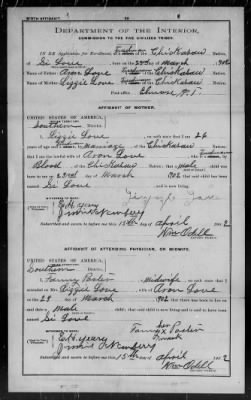 BIRTH AFFIDAVIT.
DEPARTMENT OF THE INTERIOR,
COMMISSION TO THE FIVE CIVILIZED TRIBES.
IN RE Application for Enrollment, Chickasaw Nation,
Si Love, born on the 23rd day of March, 1902
Name of Father: Aron Love Chickasaw Nation.
Name of Mother: Lizzie Love Chickasaw Nation.
Post-office Elmore, I.T.
AFFIDAVIT OF MOTHER.
UNITED STATES OF AMERICA,
INDIAN TERRITORY,
Southern District.
I, Lizzie Love, on oath state that I am 26
years of age and a citizen by marriage, of the Chickasaw Nation,
that I am the lawful wife of Aron Love, who is a citizen, by
Blood, of the Chickasaw Nation; that a male child was
born to me on 23rd day of March, 1902, that said child has been
named Si Love, and is now living.
Lizzie Love
E.H. Geary
Subscribed and sworn to before me this 15th day of April, 1902
Wm Odell
AFFIDAVIT OF ATTENDING PHYSICIAN, OR MIDWIFE.
UNITED STATES OF AMERICA,
INDIAN TERRITORY,
Southern District.
I, Fanny, a Midwife, on oath state that I
attended on Mrs. Lizzie Love, wife of Aron Love
on the 23 day of March, 1902, that there was born to her on
said date a male child; that said child is now living and is said to have been
named Si Love
her
Fanny x
mark
E.H. Geary
Subscribed and sworn to before me this 15th day of April, 1902
Wm Odell